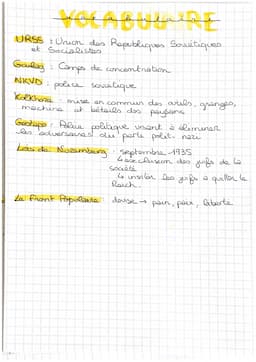 VOCABULAIRE
URSS : Union des Républiques Soviétiques
et Socialistes
Goulag : Camps de concentration
NKVD : police soviétique
Kolkhoze : mise en commun des outils, granges,
machine et bétails des paysans
Gestapo : Police politique visant à éliminer
les adversaires du parti polit. nazi
Lois de Nuremberg : septembre 1935
↳ exclusion des juifs de la
société
↳ inciter les juifs à quitter le
Reich.
Le Front Populaire : devise → pain, paix, liberté